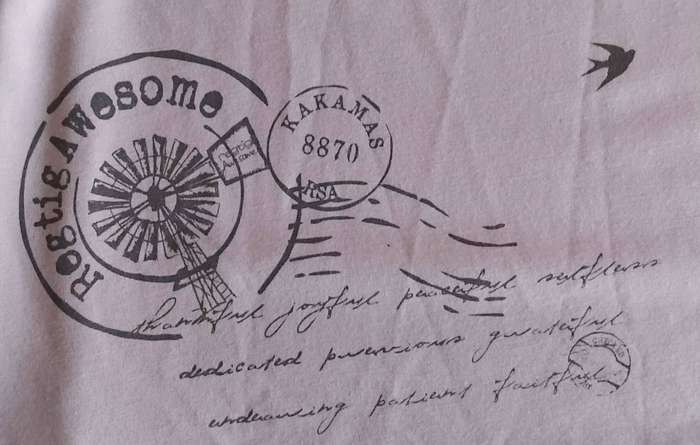 Regtig Awesome
KAKAMAS
8870
RSA
thankful joyful peaceful selfless
dedicated precious grateful
endearing patient faithful